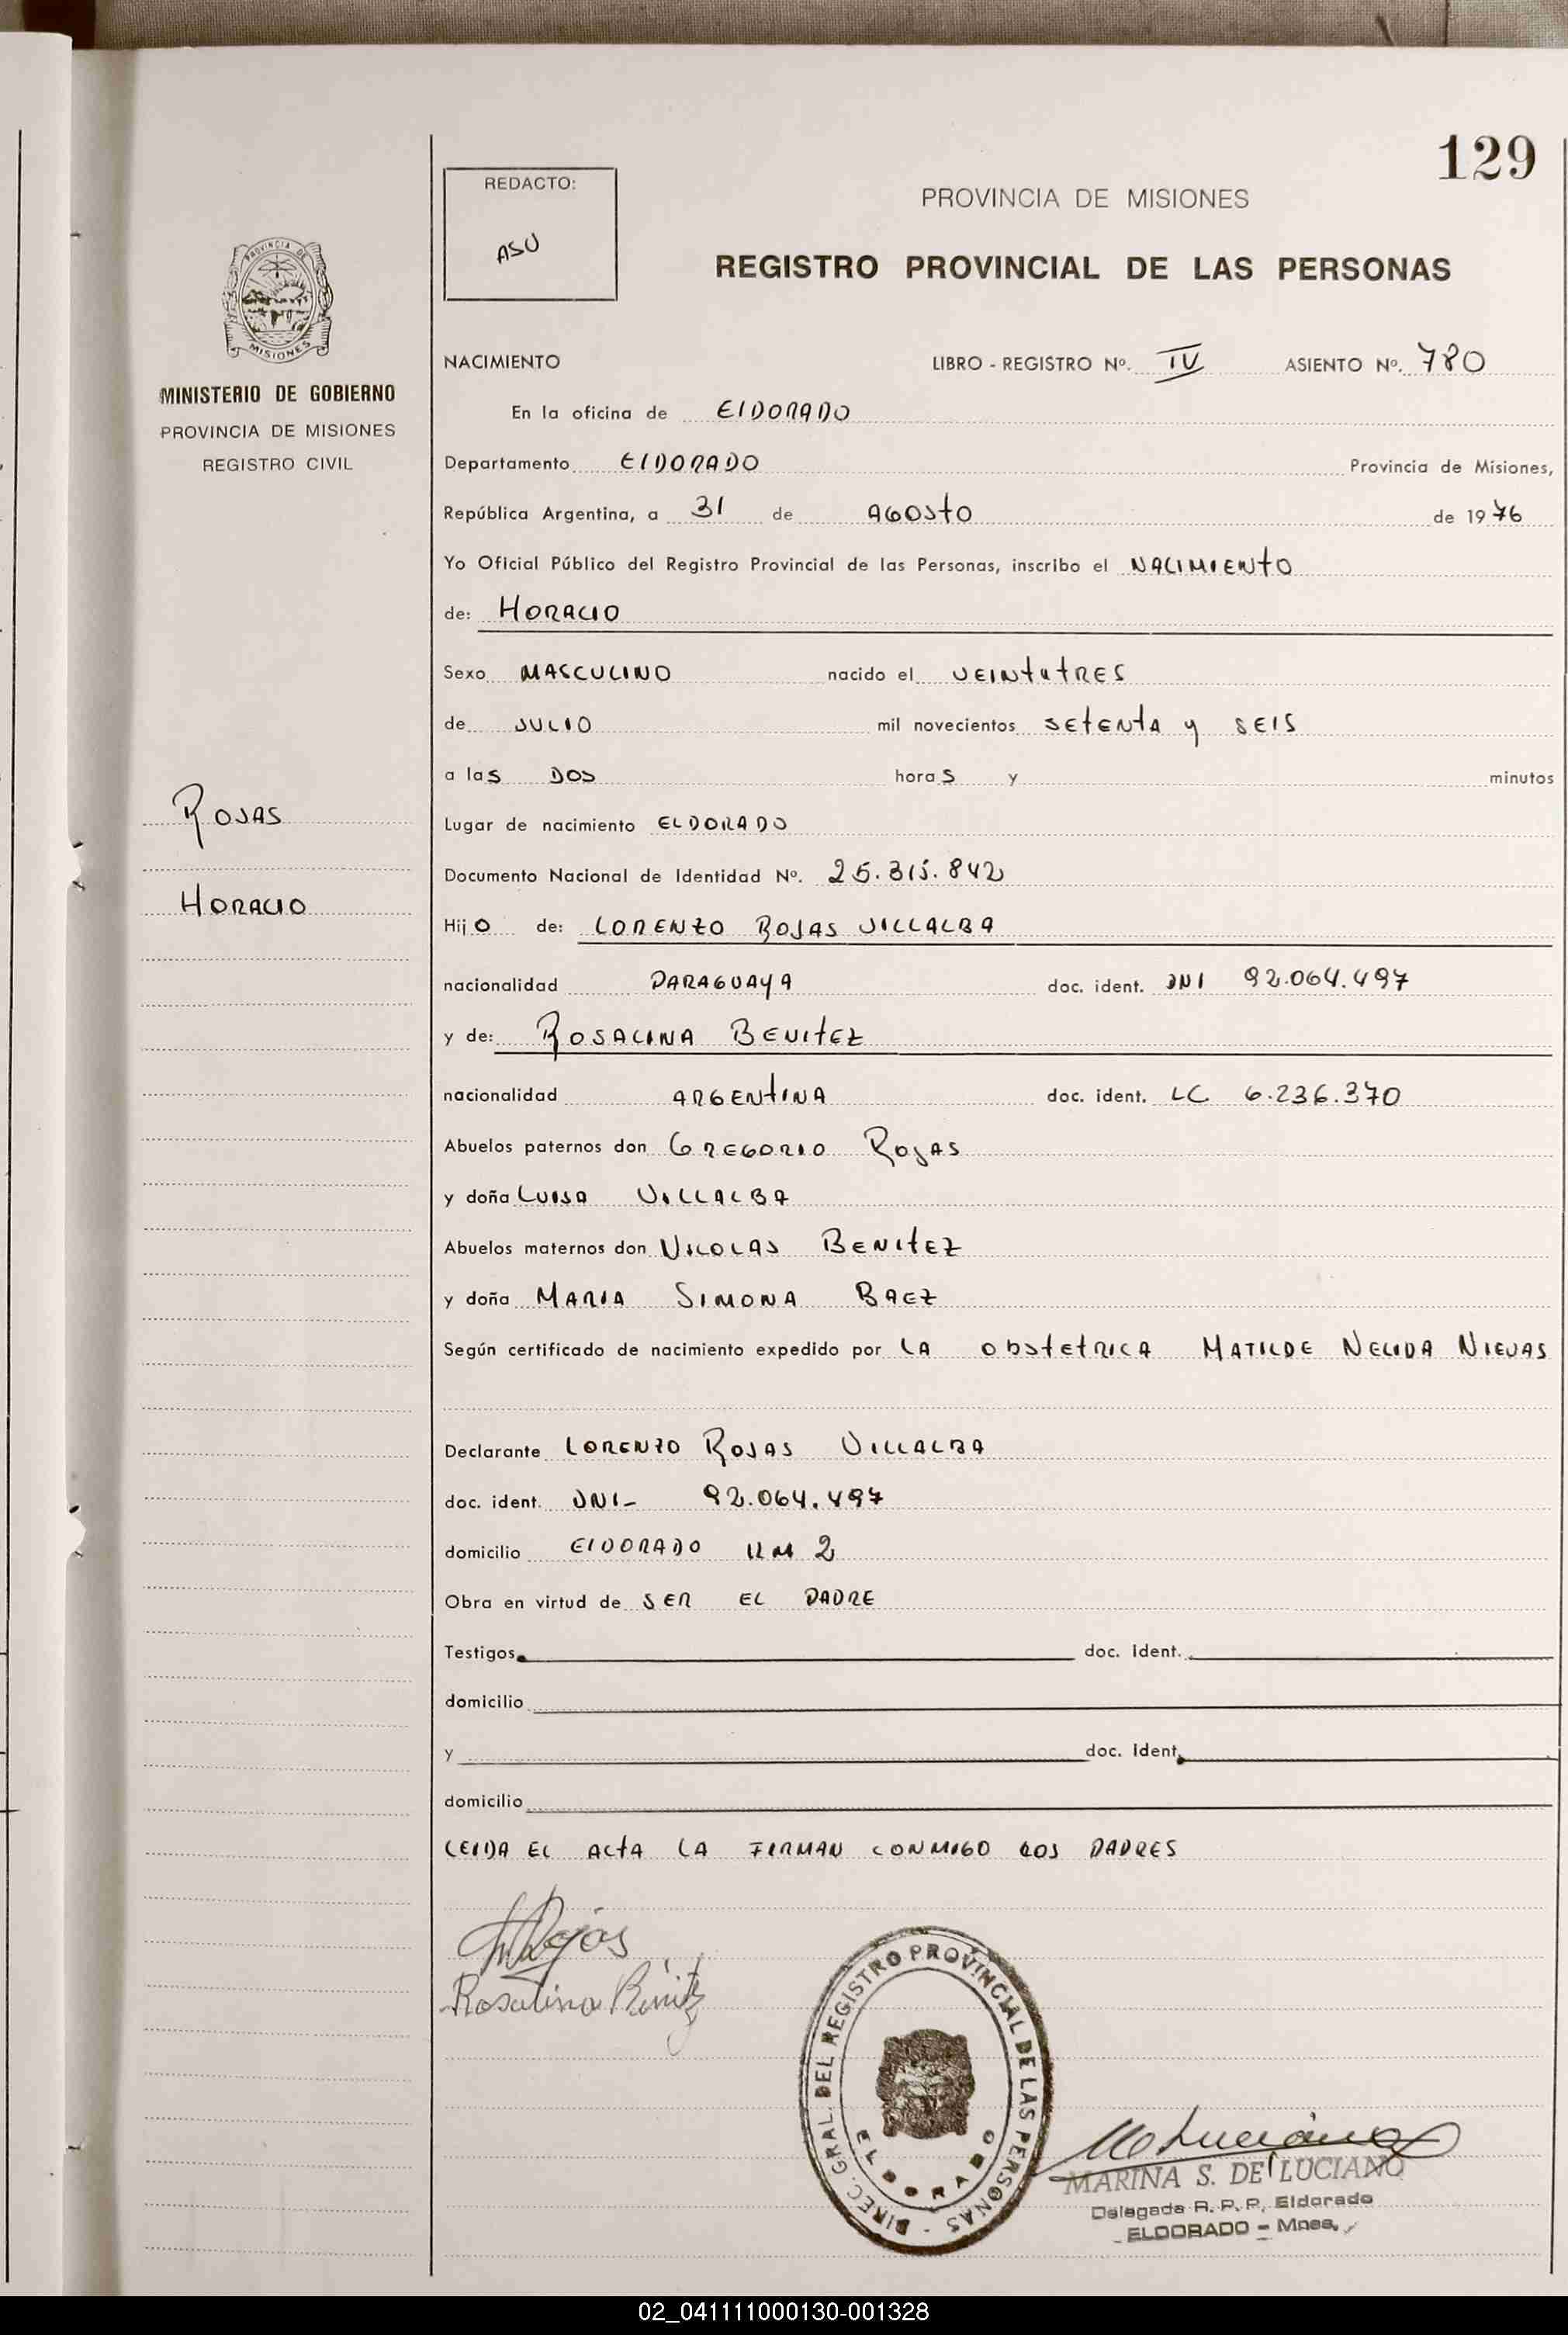 129
REDACTO:
ASU
PROVINCIA DE MISIONES
REGISTRO PROVINCIAL DE LAS PERSONAS
PROVINCIA DE
MISIONES
MINISTERIO DE GOBIERNO
PROVINCIA DE MISIONES
REGISTRO CIVIL
ROJAS
HORACIO
NACIMIENTO LIBRO - REGISTRO Nº. IV ASIENTO Nº. 780
En la oficina de ElDORADO
Departamento ElDORADO Provincia de Misiones,
República Argentina, a 31 de AGOSTO de 1976
Yo Oficial Público del Registro Provincial de las Personas, inscribo el NACIMIENTO
de: HORACIO
Sexo MASCULINO nacido el VEINTITRES
de JULIO mil novecientos SETENTA y SEIS
a las DOS horas y minutos
Lugar de nacimiento ELDORADO
Documento Nacional de Identidad Nº. 25.315.842
Hijo de: LORENZO ROJAS VILLALBA
nacionalidad PARAGUAYA doc. ident. DNI 92.064.497
y de: ROSALINA BENITEZ
nacionalidad ARGENTINA doc. ident. LC 6.236.370
Abuelos paternos don GREGORIO ROJAS
y doña LUISA VILLALBA
Abuelos maternos don NICOLAS BENITEZ
y doña MARIA SIMONA BAEZ
Según certificado de nacimiento expedido por LA OBSTETRICA MATILDE NELIDA NIEVAS
Declarante LORENZO ROJAS VILLALBA
doc. ident. DNI- 92.064.497
domicilio ElDORADO KM 2
Obra en virtud de SER EL PADRE
Testigos doc. ident.
domicilio
y doc. ident.
domicilio
LEIDA EL ACTA LA FIRMAN CONMIGO LOS PADRES
Rojas
Rosalina Benitz
DIREC. GRAL. DEL REGISTRO PROVINCIAL DE LAS PERSONAS -
ELDORADO
MARINA S. DE LUCIANO
Delegada R. P. P. Eldorado
ELDORADO - Mnes.
02_041111000130-001328